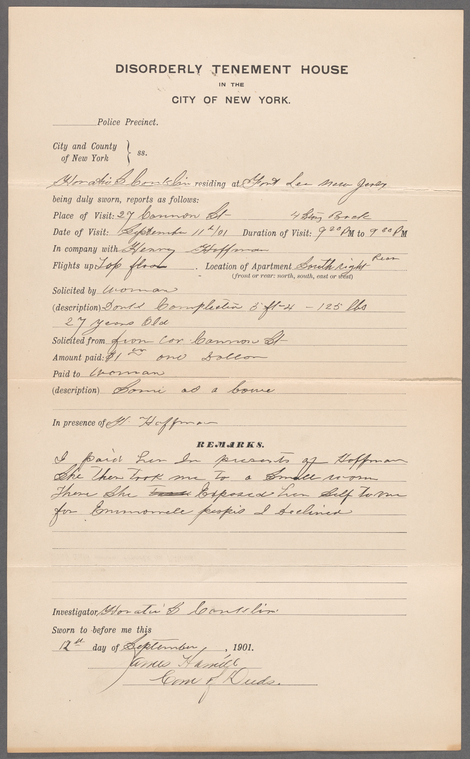 DISORDERLY TENEMENT HOUSE
IN THE
CITY OF NEW YORK.
Police Precinct.
City and County
of New York } ss.
Horatio G Conklin residing at Fort Lee New Jersey
being duly sworn, reports as follows:
Place of Visit: 27 Cannon St 4 Stry Back
Date of Visit: September 11th/01 Duration of Visit: 9 00 PM to 9 20 PM
In company with Henry Hoffman
Flights up Top floor Location of Apartment South right Rear
(front or rear: north, south, east or west)
Solicited by woman
(description) Complection 5 ft 4 - 125 lbs
27 years Old
Solicited from from Cannon St
Amount paid: $1 00 one Dollar
Paid to Woman
(description) Same as a bove
In presence of H. Hoffman
REMARKS.
I paid her In presents of Hoffman
She then took me to a Small room
There She Exposed her Self to me
for Emmorrell I declined
Investigator, Horatio G Conklin
Sworn to before me this
12th day of September, 1901.
James
Com of Deeds.